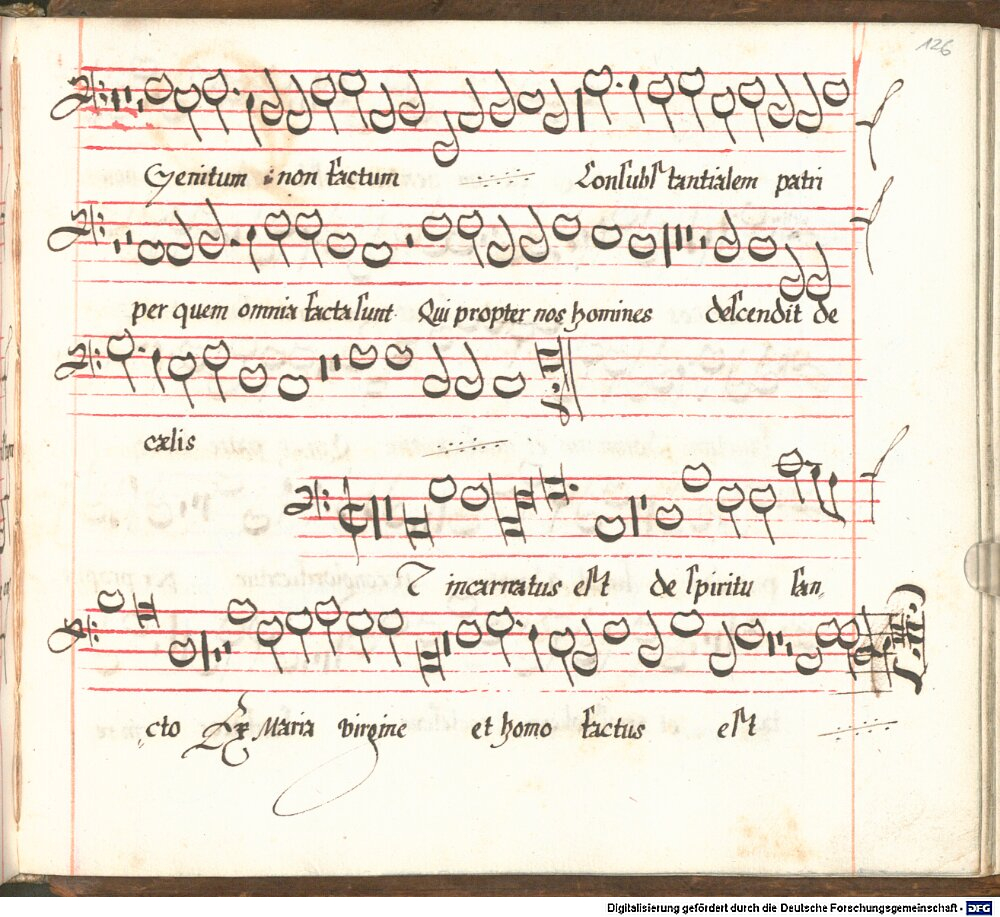 126
Genitum non factum Consubstantialem patri
per quem omnia facta sunt Qui propter nos homines descendit de
cælis
T incarnatus est de spiritu san
cto Ex Maria virgine et homo factus est
Digitalisierung gefördert durch die Deutsche Forschungsgemeinschaft - DFG